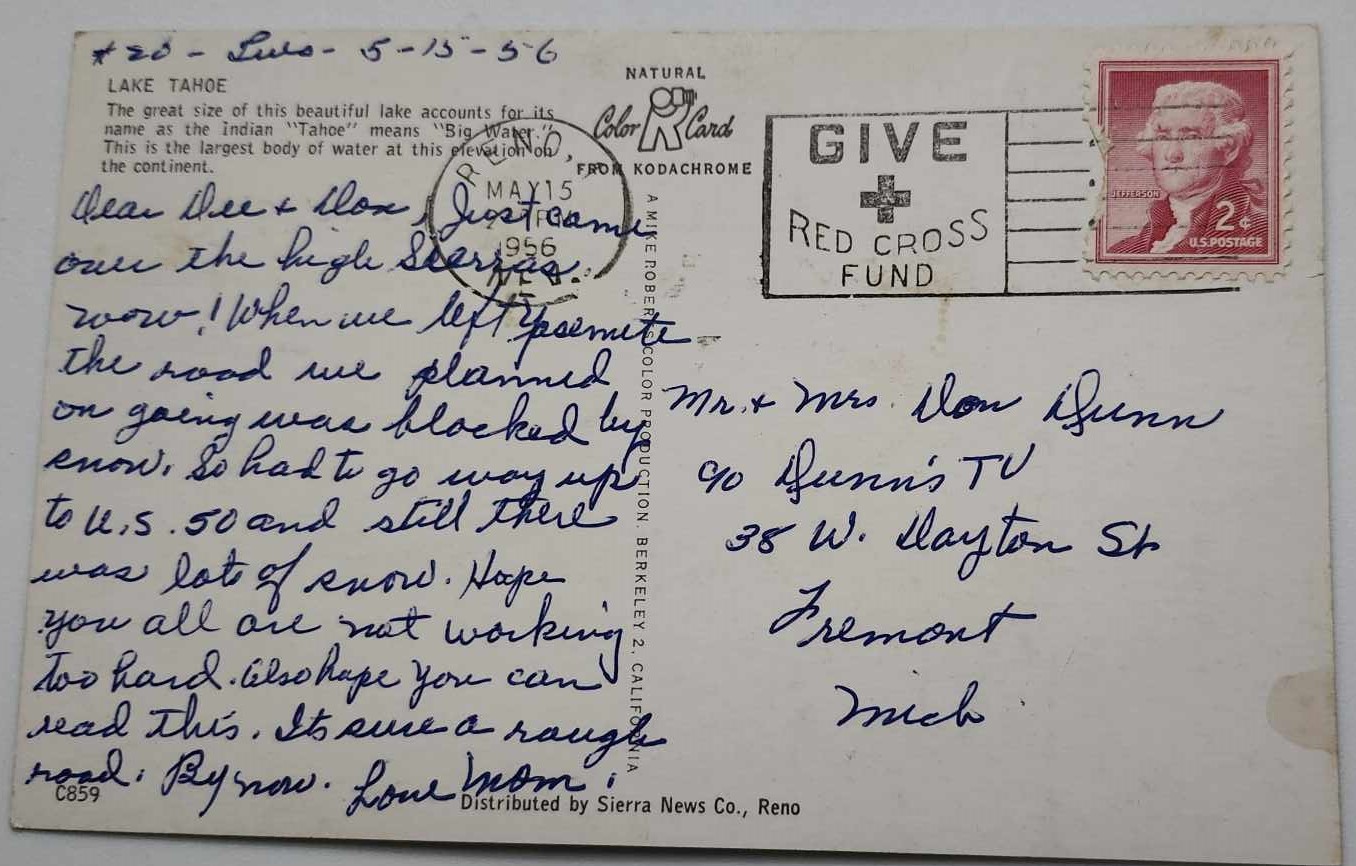 #20 - Tues - 5-15-56
LAKE TAHOE
The great size of this beautiful lake accounts for its
name as the Indian "Tahoe" means "Big Water."
This is the largest body of water at this elevation on
the continent.
NATURAL
Color Card
FROM KODACHROME
RENO,
MAY 15
PM
1956
NEV.
GIVE
RED CROSS
FUND
JEFFERSON
2¢
U.S. POSTAGE
Dear Dee + Don, Just came
over the high Sierras
wow! When we left Yosemite
the road we planned
on going was blocked by
snow. So had to go way up
to U.S. 50 and still there
was lots of snow. Hope
you all are not working
too hard. Also hope you can
read this. Its sure a rough
road. By now. Love Mom.
A MIKE ROBERTS COLOR PRODUCTION. BERKELEY 2, CALIFORNIA
Mr. + Mrs. Don Dunn
c/o Dunn's TV
38 W. Dayton St
Fremont
Mich
C859
Distributed by Sierra News Co., Reno